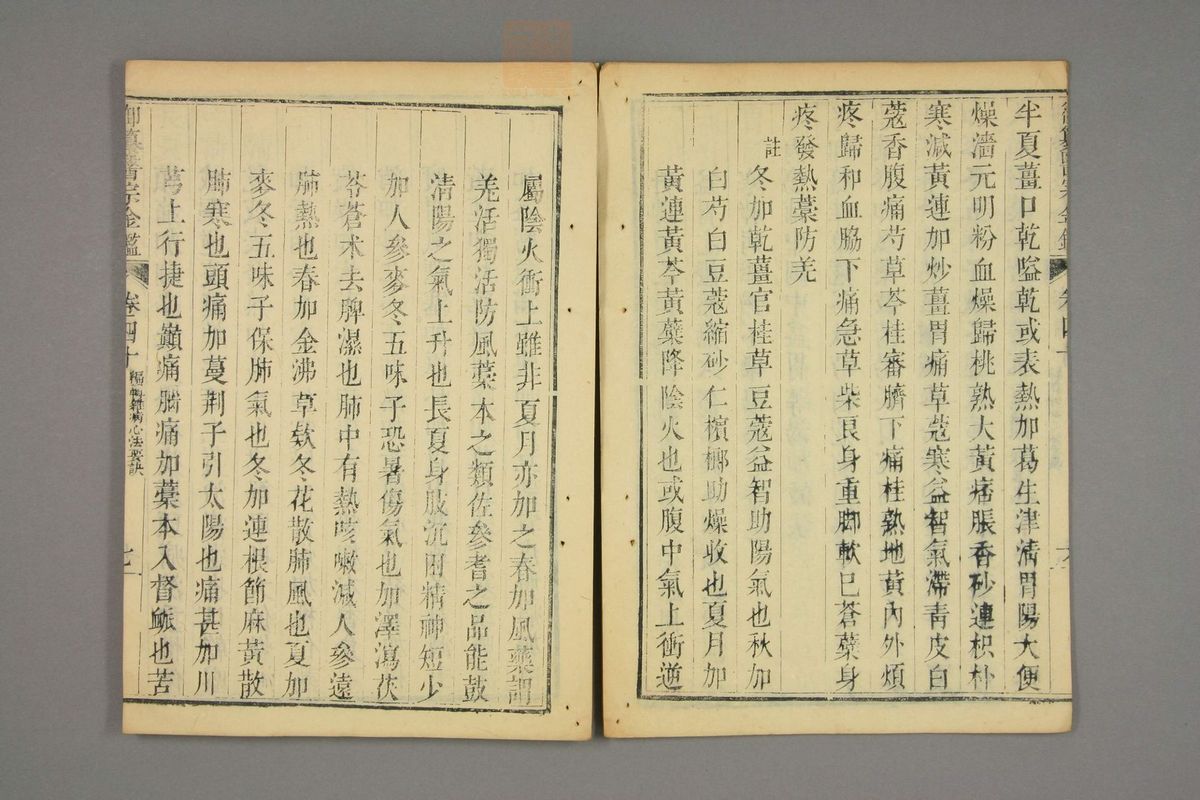 半夏薑口乾嗌乾或表熱加葛生津清胃陽大便
燥濇元明粉血燥歸桃熟大黃痞脹香砂連枳朴
寒減黃連加炒薑胃痛草蔻寒益智氣滯青皮白
蔻香腹痛芍草芩桂審臍下痛桂熟地黃內外煩
疼歸和血脇下痛急草柴艮身重脚軟已蒼蘗身
疼發熱藁防羌
註
冬加乾薑官桂草豆蔻益智助陽氣也秋加
白芍白豆蔻縮砂仁檳榔助燥收也夏月加
黃連黃芩黃蘗降陰火也或腹中氣上衝逆
御纂醫宗金鑑
卷四十
編輯雜病心法要訣
六
屬陰火衝上雖非夏月亦加之春加風藥謂
羌活獨活防風藁本之類佐參耆之品能鼓
清陽之氣上升也長夏身肢沉困精神短少
加人參麥冬五味子恐暑傷氣也加澤瀉茯
苓蒼术去脾濕也肺中有熱咳嗽減人參遠
肺熱也春加金沸草欸冬花散肺風也夏加
麥冬五味子保肺氣也冬加連根節麻黃散
肺寒也頭痛加蔓荆子引太陽也痛甚加川
芎上行捷也巔痛腦痛加藁本入督脈也苦
御纂醫宗金鑑
卷四十
編輯雜病心法要訣
七